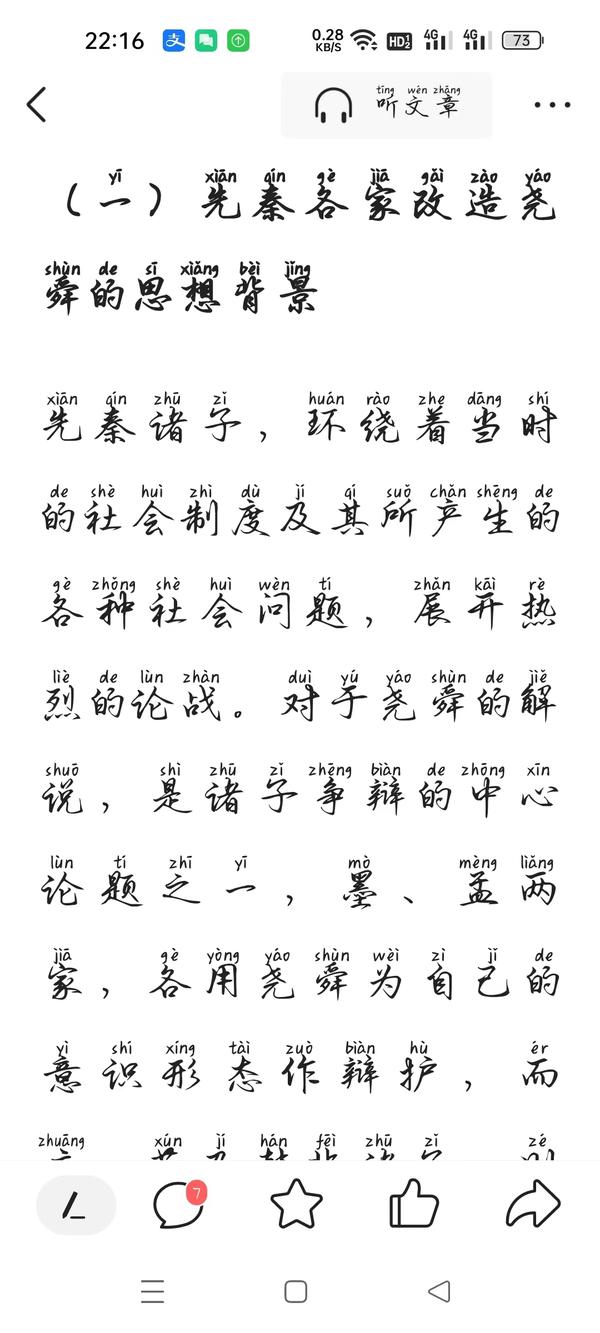 22:16
0.28 KB/S
HD 1 2
4G
4G
73
tīng wén zhāng
听文章
yī xiān qín gè jiā gǎi zào yáo
（一）先秦各家改造尧
shùn de sī xiǎng bèi jǐng
舜的思想背景
xiān qín zhū zǐ huán rào zhe dāng shí
先秦诸子，环绕着当时
de shè huì zhì dù jí qí suǒ chǎn shēng de
的社会制度及其所产生的
gè zhǒng shè huì wèn tí zhǎn kāi rè
各种社会问题，展开热
liè de lùn zhàn duì yú yáo shùn de jiě
烈的论战。对于尧舜的解
shuō shì zhū zǐ zhēng biàn de zhōng xīn
说，是诸子争辩的中心
lùn tí zhī yī mò mèng liǎng
论题之一，墨、孟两
jiā gè yòng yáo shùn wèi zì jǐ de
家，各用尧舜为自己的
yì shí xíng tài zuò biàn hù ér
意识形态作辩护，而
zhuāng xún jí hán fēi zhū zǐ zé
7